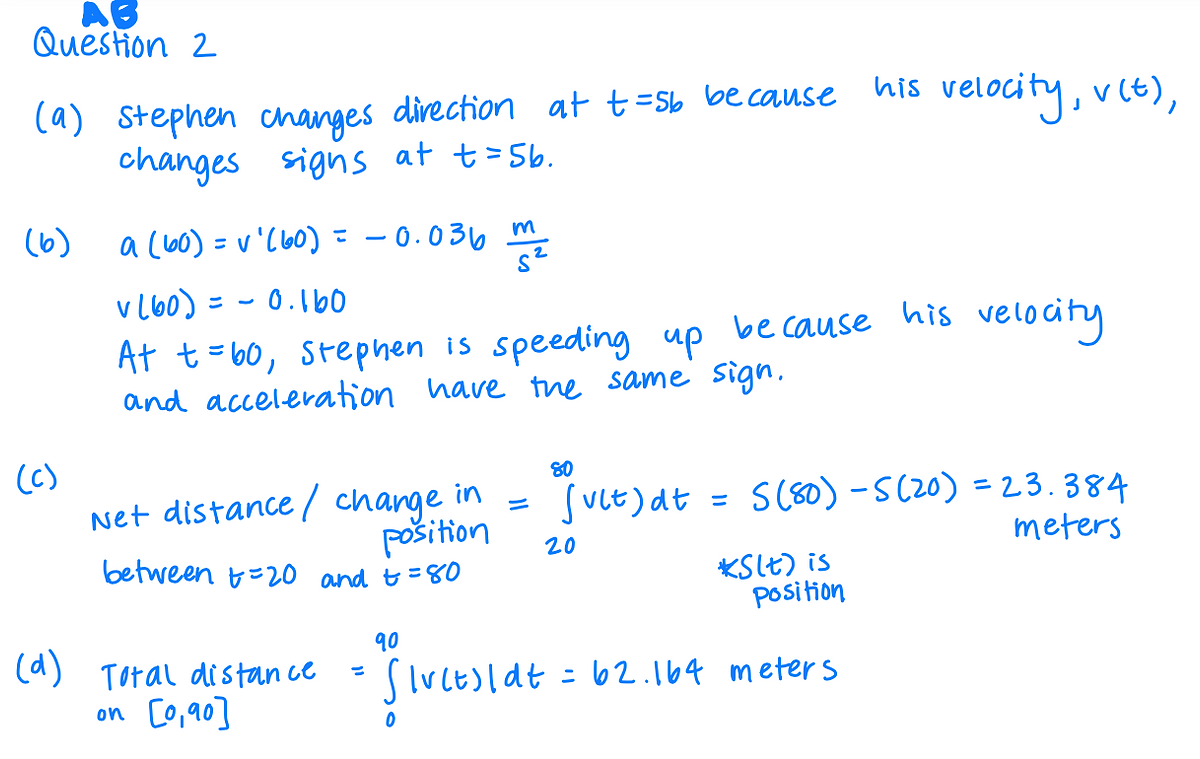 AB
Question 2
(a) Stephen changes direction at t=56 because his velocity, v(t),
changes signs at t=56.
(b) a(60) = v'(60) = -0.036 m/s²
v(60) = -0.160
At t=60, Stephen is speeding up because his velocity
and acceleration have the same sign.
(c) Net distance/ change in position = ∫₂₀⁸⁰ v(t)dt = S(80) - S(20) = 23.384 meters
between t=20 and t=80
*S(t) is
position
(d) Total distance = ∫₀⁹⁰ |v(t)|dt = 62.164 meters
on [0,90]